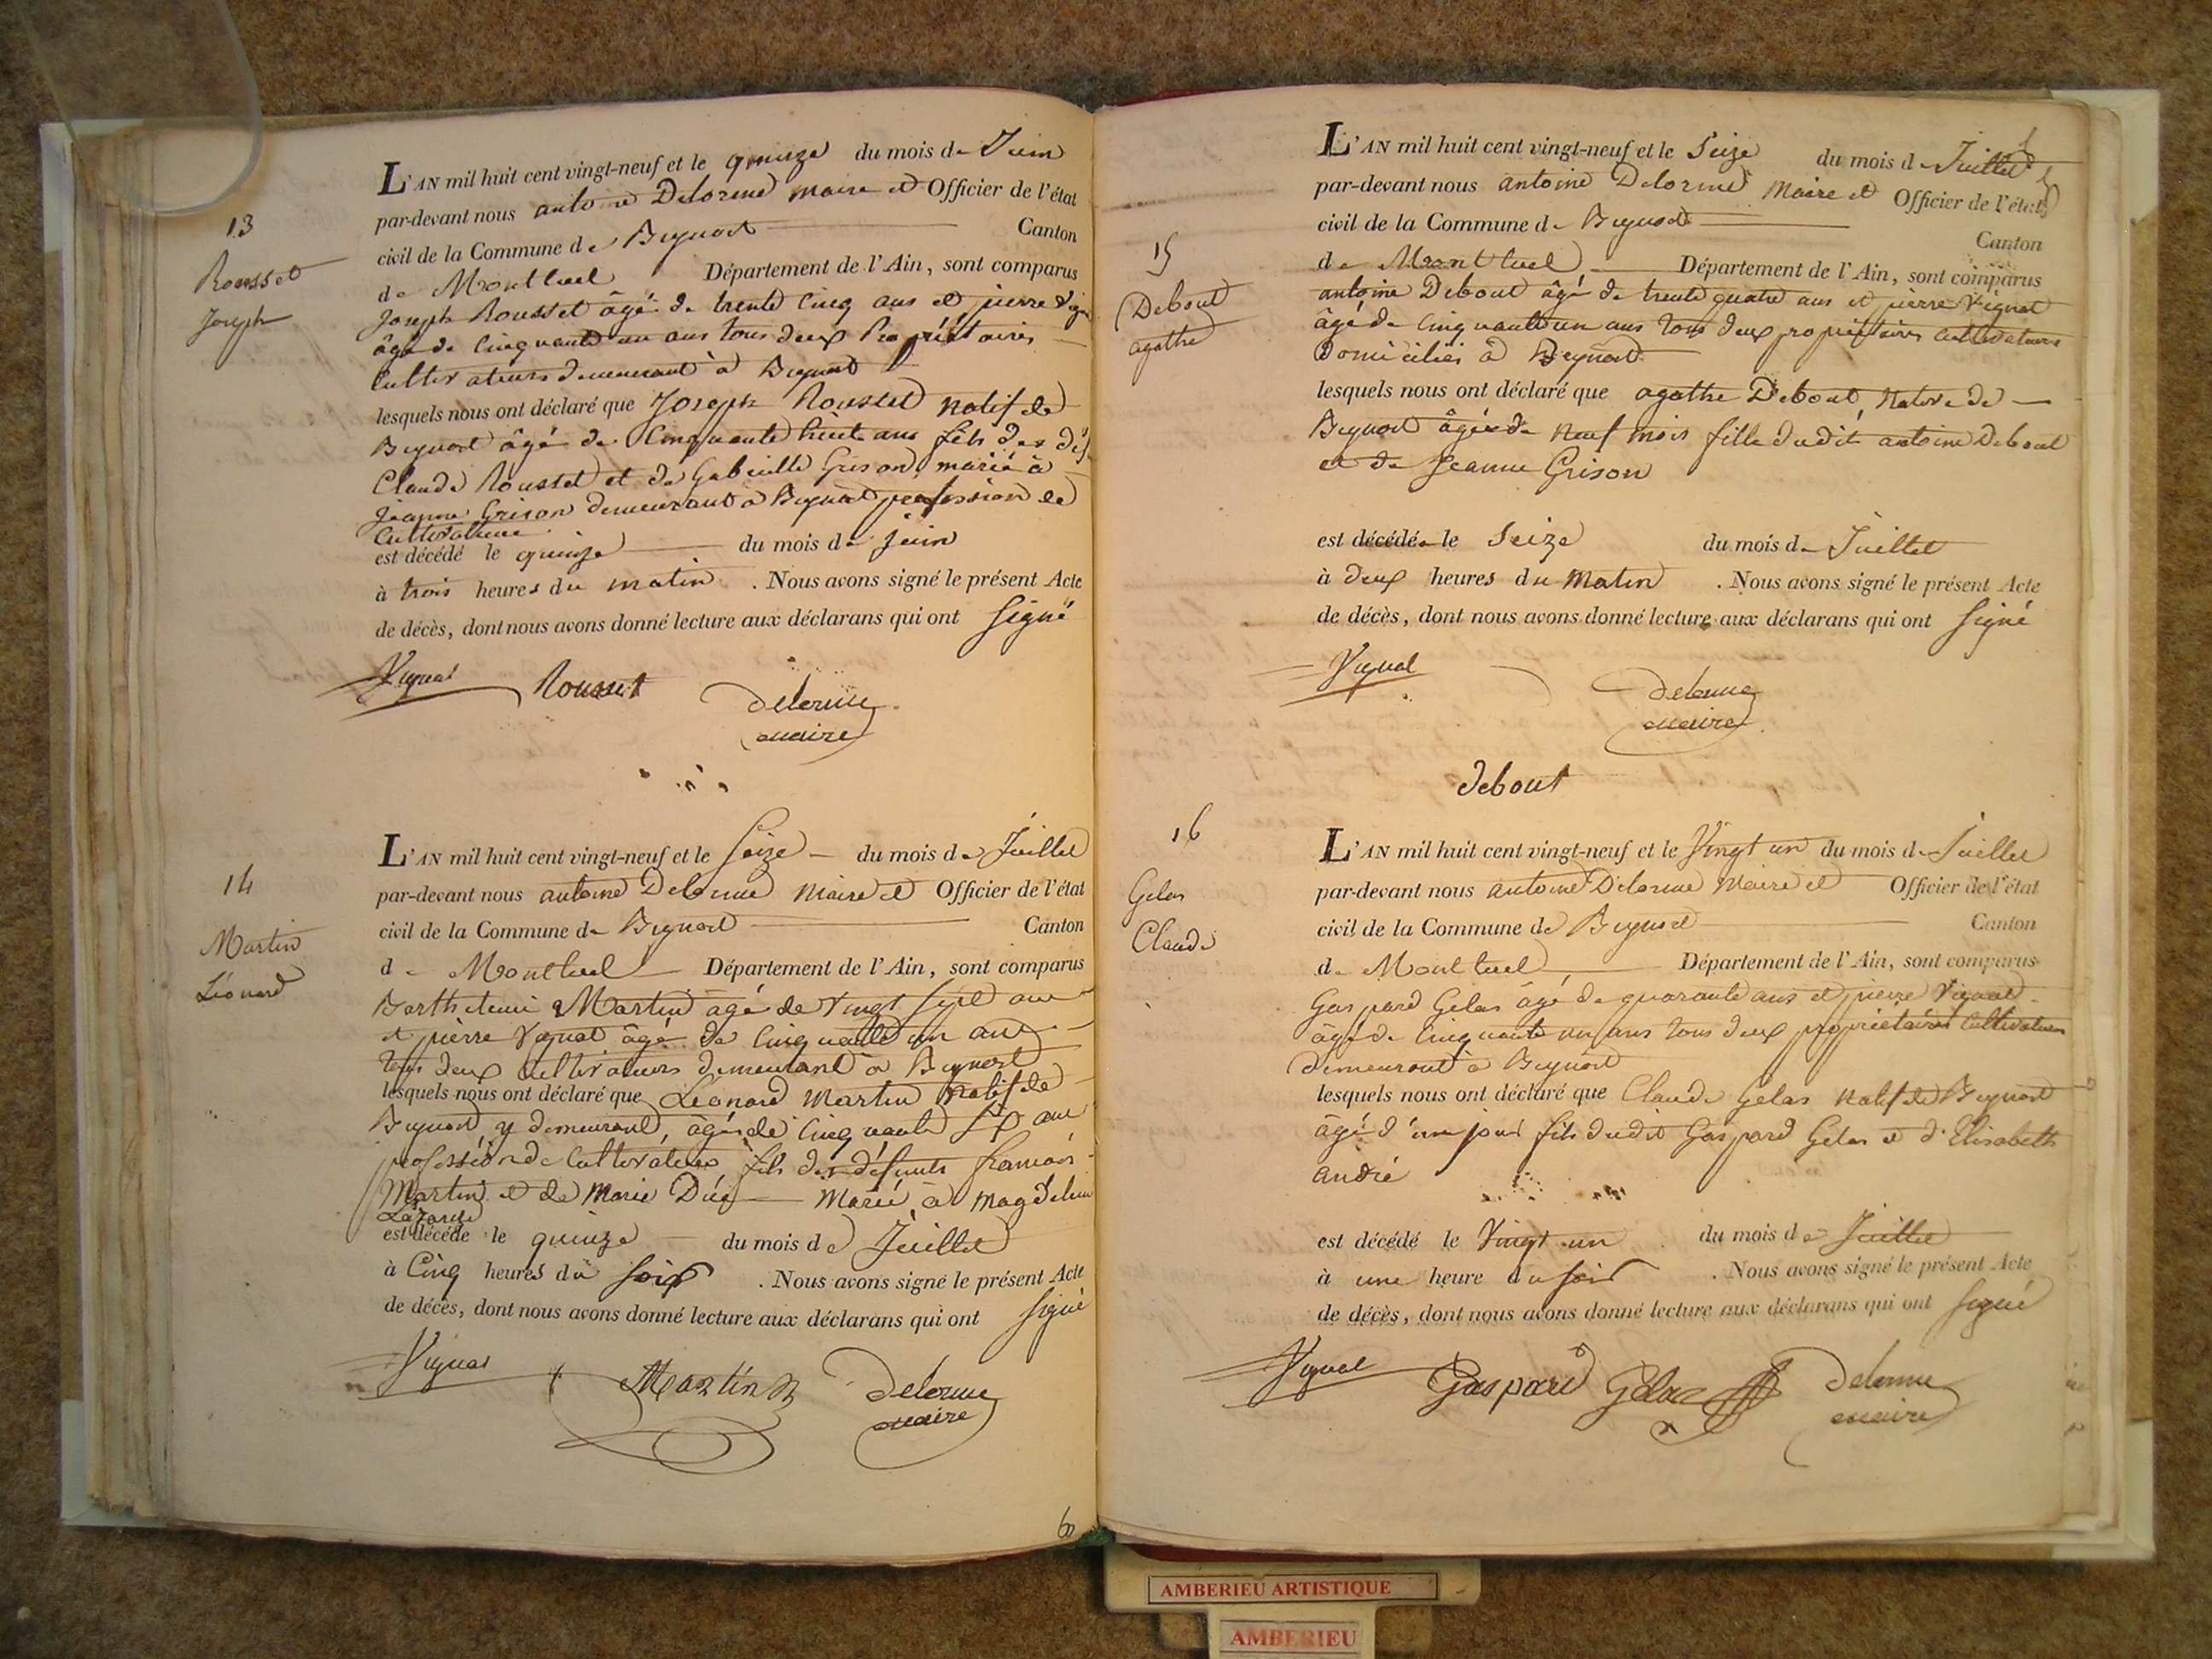 13
Rousset
Joseph
L'AN mil huit cent vingt-neuf et le quinze du mois de Juin
par-devant nous antoine Delorme maire et Officier de l'état
civil de la Commune de Beynost Canton
de Montluel Département de l'Ain, sont comparus
Joseph Rousset âgé de trente cinq ans et pierre
âgé de cinquante un ans tous deux Propriétaires
Cultivateurs demeurant à Beynost
lesquels nous ont déclaré que Joseph Rousset natif de
Beynost âgé de Cinquante huit ans fils des
Claude Rousset et de Gabrielle Grison, marié à
Jeanne Grison demeurant à Beynost profession de
Cultivateur
est décédé le quinze du mois de juin
à trois heures du matin . Nous avons signé le présent Acte
de décès, dont nous avons donné lecture aux déclarans qui ont signé
Vignat Rousset Delorme
maire
14
Martin
Léonard
L'AN mil huit cent vingt-neuf et le Seize du mois de Juillet
par-devant nous antoine Delorme maire et Officier de l'état
civil de la Commune de Beynost Canton
de Montluel Département de l'Ain, sont comparus
Barthelemi Martin âgé de vingt sept ans
et pierre Vignat âgé de cinquante un ans
tous deux cultivateurs demeurant à Beynost
lesquels nous ont déclaré que Léonard Martin natif de
Beynost y demeurant, âgé de cinquante six ans
profession de Cultivateur fils des défunts françois
Martin et de Marie Marié à Magdeleine
est décédé le quinze du mois de Juillet
à Cinq heures du soir . Nous avons signé le présent Acte
de décès, dont nous avons donné lecture aux déclarans qui ont signé
Vignat Martin Delorme
maire
60
15
Debout
agathe
L'AN mil huit cent vingt-neuf et le Seize du mois de Juillet
par-devant nous antoine Delorme Maire et Officier de l'état
civil de la Commune de Beynost
Canton
de Montluel Département de l'Ain, sont comparus
antoine Debout âgé de trente quatre ans et pierre Vignat
âgé de cinquante un ans tous deux propriétaires cultivateurs
Domiciliés à Beynost
lesquels nous ont déclaré que agathe Debout, Native de
Beynost âgée de neuf mois fille dudit antoine Debout
et de Jeanne Grison
est décédée le Seize du mois de Juillet
à deux heures du Matin . Nous avons signé le présent Acte
de décès, dont nous avons donné lecture aux déclarans qui ont Signé
Vignat Delorme
maire
debout
16
Gelas
Claude
L'AN mil huit cent vingt-neuf et le Vingt un du mois de Juillet
par-devant nous antoine Delorme Maire et Officier de l'état
civil de la Commune de Beynost Canton
de Montluel Département de l'Ain, sont comparus
Gaspard Gelas âgé de quarante ans et pierre Vignat
âgé de cinquante un ans tous deux propriétaires Cultivateurs
demeurant à Beynost
lesquels nous ont déclaré que Claude Gelas natif de Beynost
âgé d'un jour fils dudit Gaspard Gelas et d'Elisabeth
andré
est décédé le Vingt un du mois de Juillet
à une heure du soir . Nous avons signé le présent Acte
de décès, dont nous avons donné lecture aux déclarans qui ont signé
Vignat Gaspard Gelas Delorme
maire
AMBERIEU ARTISTIQUE
AMBERIEU